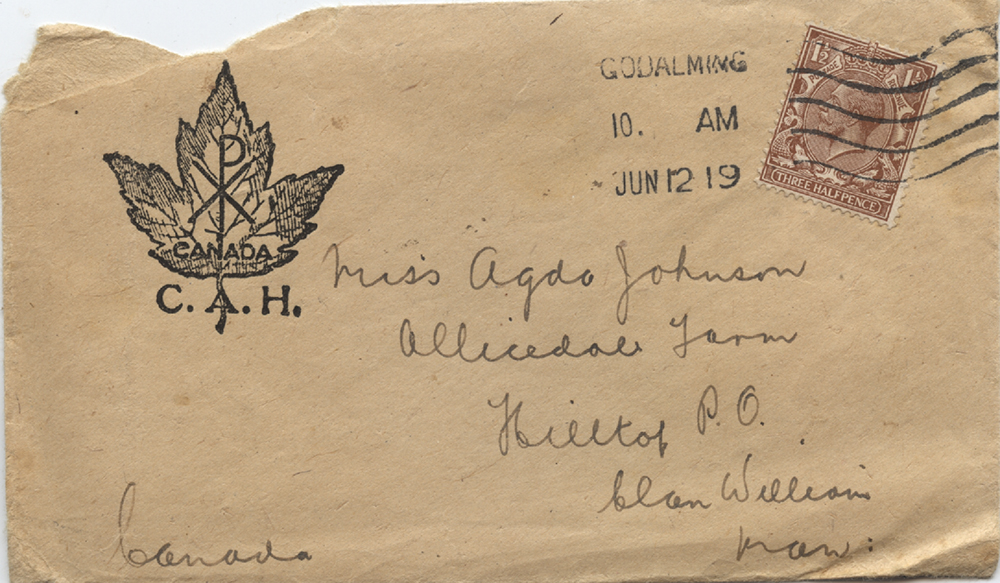 GODALMING
10. AM
JUN 12 19
1½ 1½
THREE HALFPENCE
CANADA
C. A. H.
Miss Agda Johnson
Allicedale Farm
Hilltop P.O.
Clan William
Man:
Canada